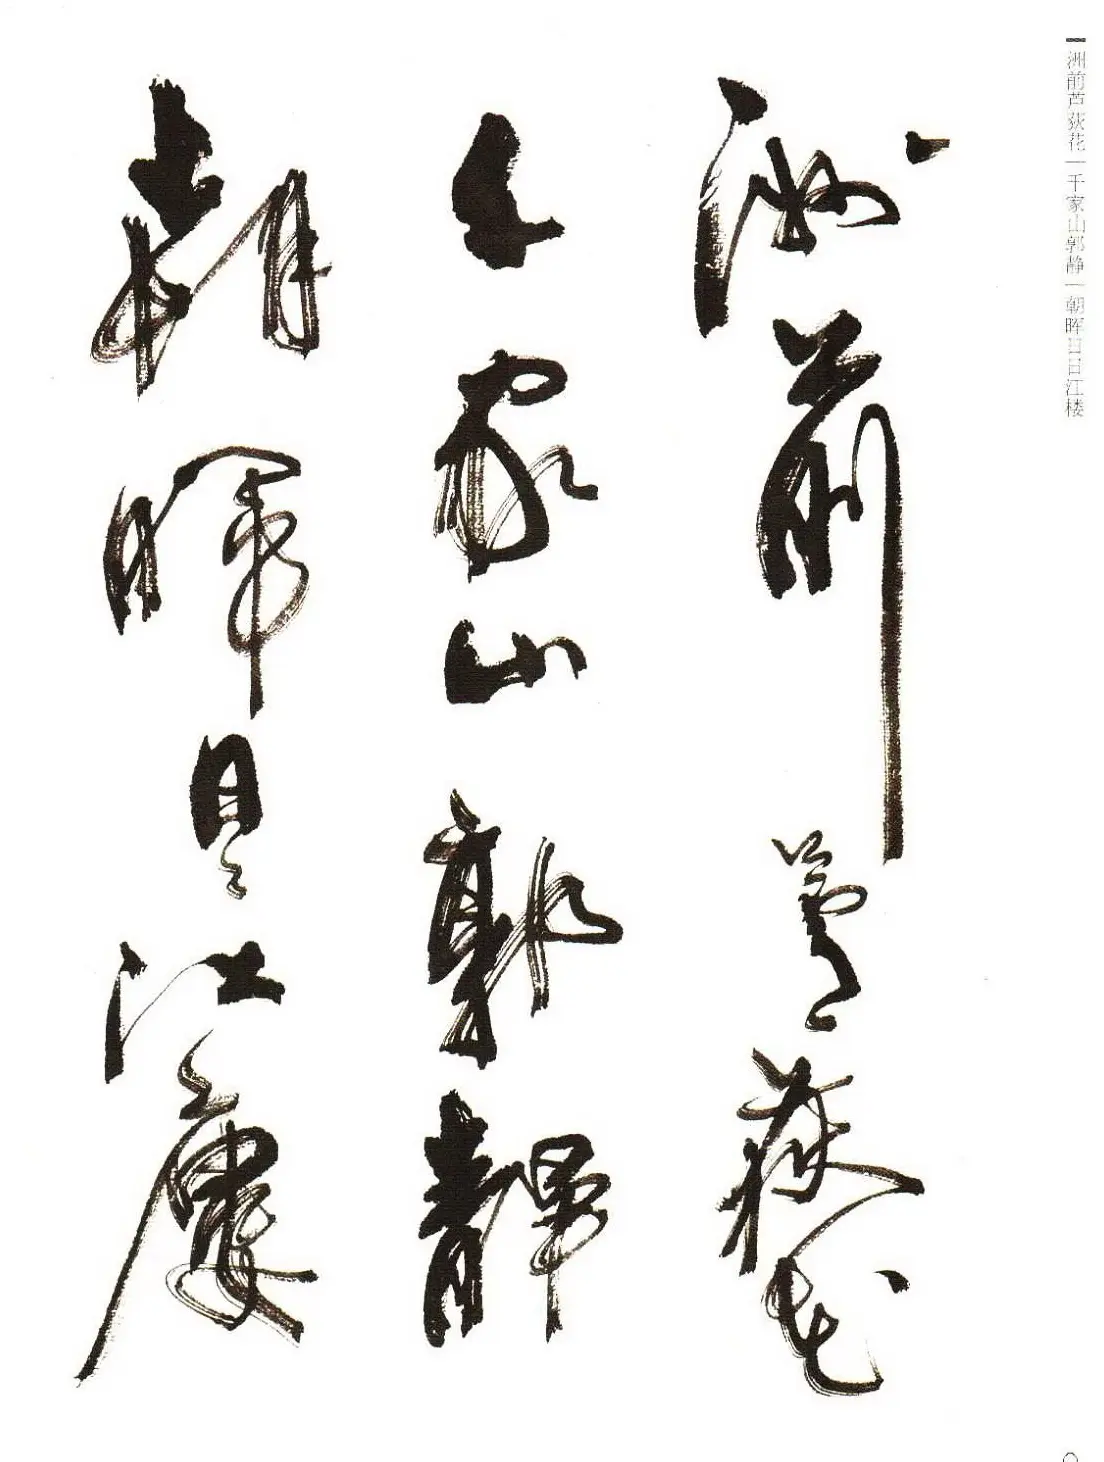 洲前芦荻花
千家山郭静
朝晖日日江楼
洲前芦荻花｜千家山郭静｜朝晖日日江楼